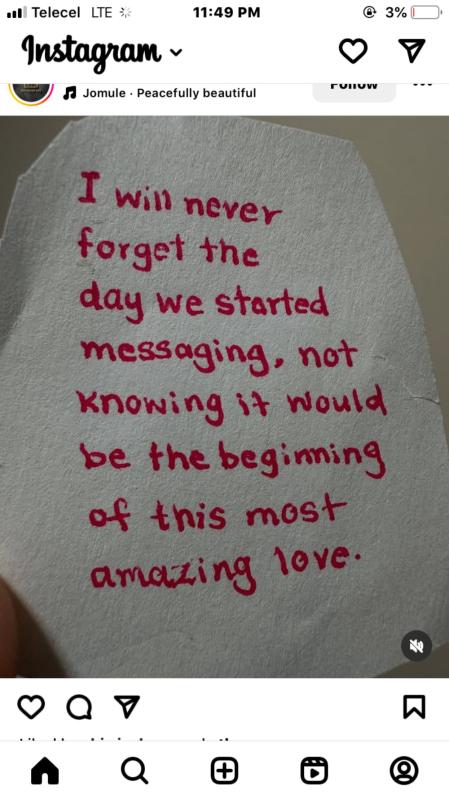 Telecel LTE 11:49 PM 3%
Instagram
Jomule · Peacefully beautiful
Follow
I will never
forget the
day we started
messaging, not
knowing it would
be the beginning
of this most
amazing love.